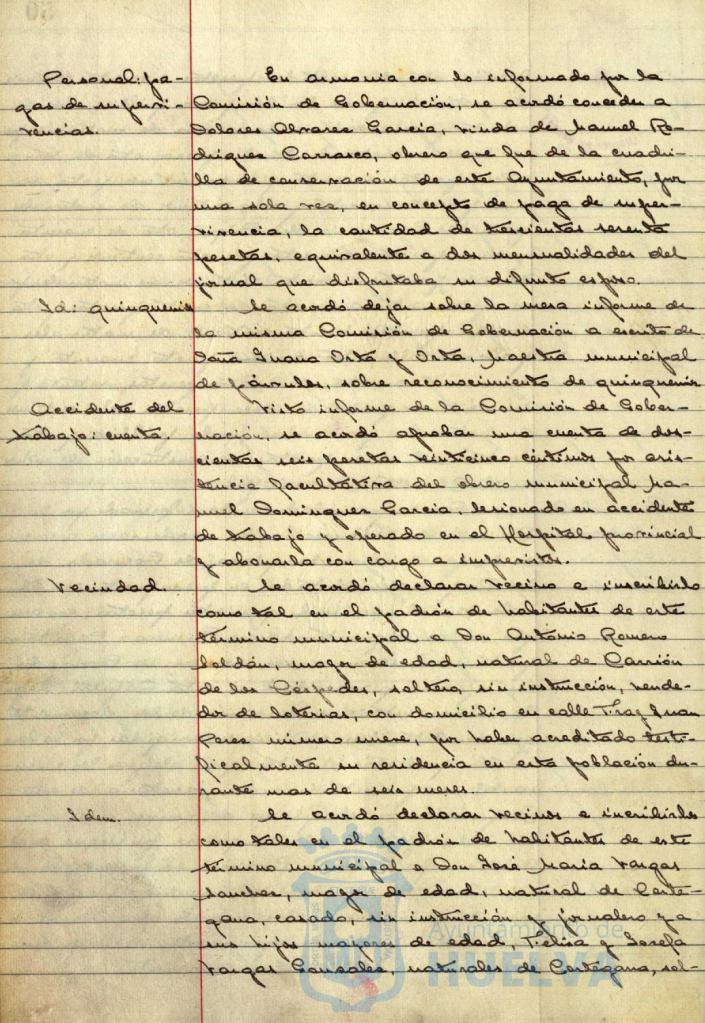 Personal: pa-
gas de supervi-
vencias.
En armonia con lo informado por la
Comisión de Gobernación, se acordó conceder a
Dolores Alvarez Garcia, viuda de Manuel Ro-
driguez Carrasco, obrero que fue de la cuadri-
lla de conservación de este Ayuntamiento, por
una sola vez, en concepto de paga de super-
vivencia, la cantidad de trescientas sesenta
pesetas, equivalente a dos mensualidades del
jornal que disfrutaba su difunto esposo.
Id: quinquenio
Se acordó dejar sobre la mesa informe de
la misma Comisión de Gobernación a escrito de
Doña Juana Orta y Orta, Maestra municipal
de párvulos, sobre reconocimiento de quinquenio
Accidente del
trabajo: cuenta.
Visto informe de la Comisión de Gober-
nación, se acordó aprobar una cuenta de dos-
cientas seis pesetas veinticinco céntimos por asis-
tencia facultativa del obrero municipal Ma-
nuel Dominguez Garcia, lesionado en accidente
de trabajo y operado en el Hospital provincial
y abonarla con cargo a imprevistos.
Vecindad.
Se acordó declarar vecino e inscribirlo
como tal en el padrón de habitantes de este
término municipal a Don Antonio Romero
Soldán, mayor de edad, natural de Carrión
de los Céspedes, soltero, sin instrucción, vende-
dor de loterias, con domicilio en calle Fray Juan
Perez número nueve, por haber acreditado testi-
ficalmente su residencia en esta población du-
rante mas de seis meses.
Idem.
Se acordó declarar vecinos e incribirlos
como tales en el padrón de habitantes de este
término municipal a Don José Maria Vargas
Sanchez, mayor de edad, natural de Corte-
gana, casado, sin instrucción y jornalero y a
sus hijos mayores de edad, Felisa y Josefa
Vargas Gonzalez, naturales de Cortegana, sol-
Ayuntamiento de
HUELVA